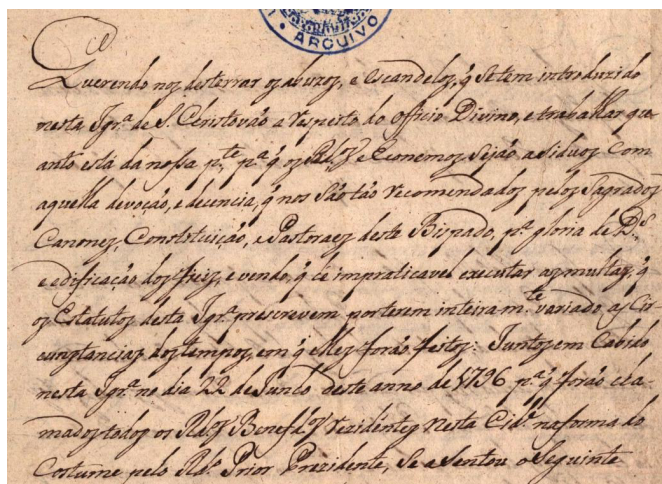 ARQUIVO
Querendo nos desterrar os abuzos, e escandelos, q̃ se tem introduzido
nesta Igr.ª de S. Christovão a respeito do Officio Divino, e trabalhar qu-
anto está da nossa p.te p.ª q̃ os e Economos sejão asiduos com
aquella devoção, e decencia, q̃ nos são tão recomendados pelos Sagrados
Canones, Constituição, e Pastoraes deste Bispado, p.ª gloria de D.s
e edificação dos fieis, e vendo, q̃ he impraticavel executar as multas, q̃
os Estatutos desta Igr.ª prescrevem por terem inteiram.te variado as Cir
cunstancias dos tempos, em q̃ elles forão feitos: Juntos em Cabido
nesta Igr.ª no dia 22 de Junho deste anno de 1796 p.ª q̃ forão cha-
mados todos os Rd.os Benef.dos rezidentes nesta Cid.e na forma do
Costume pelo Rd.o Prior Prezidente, se asentou o seguinte